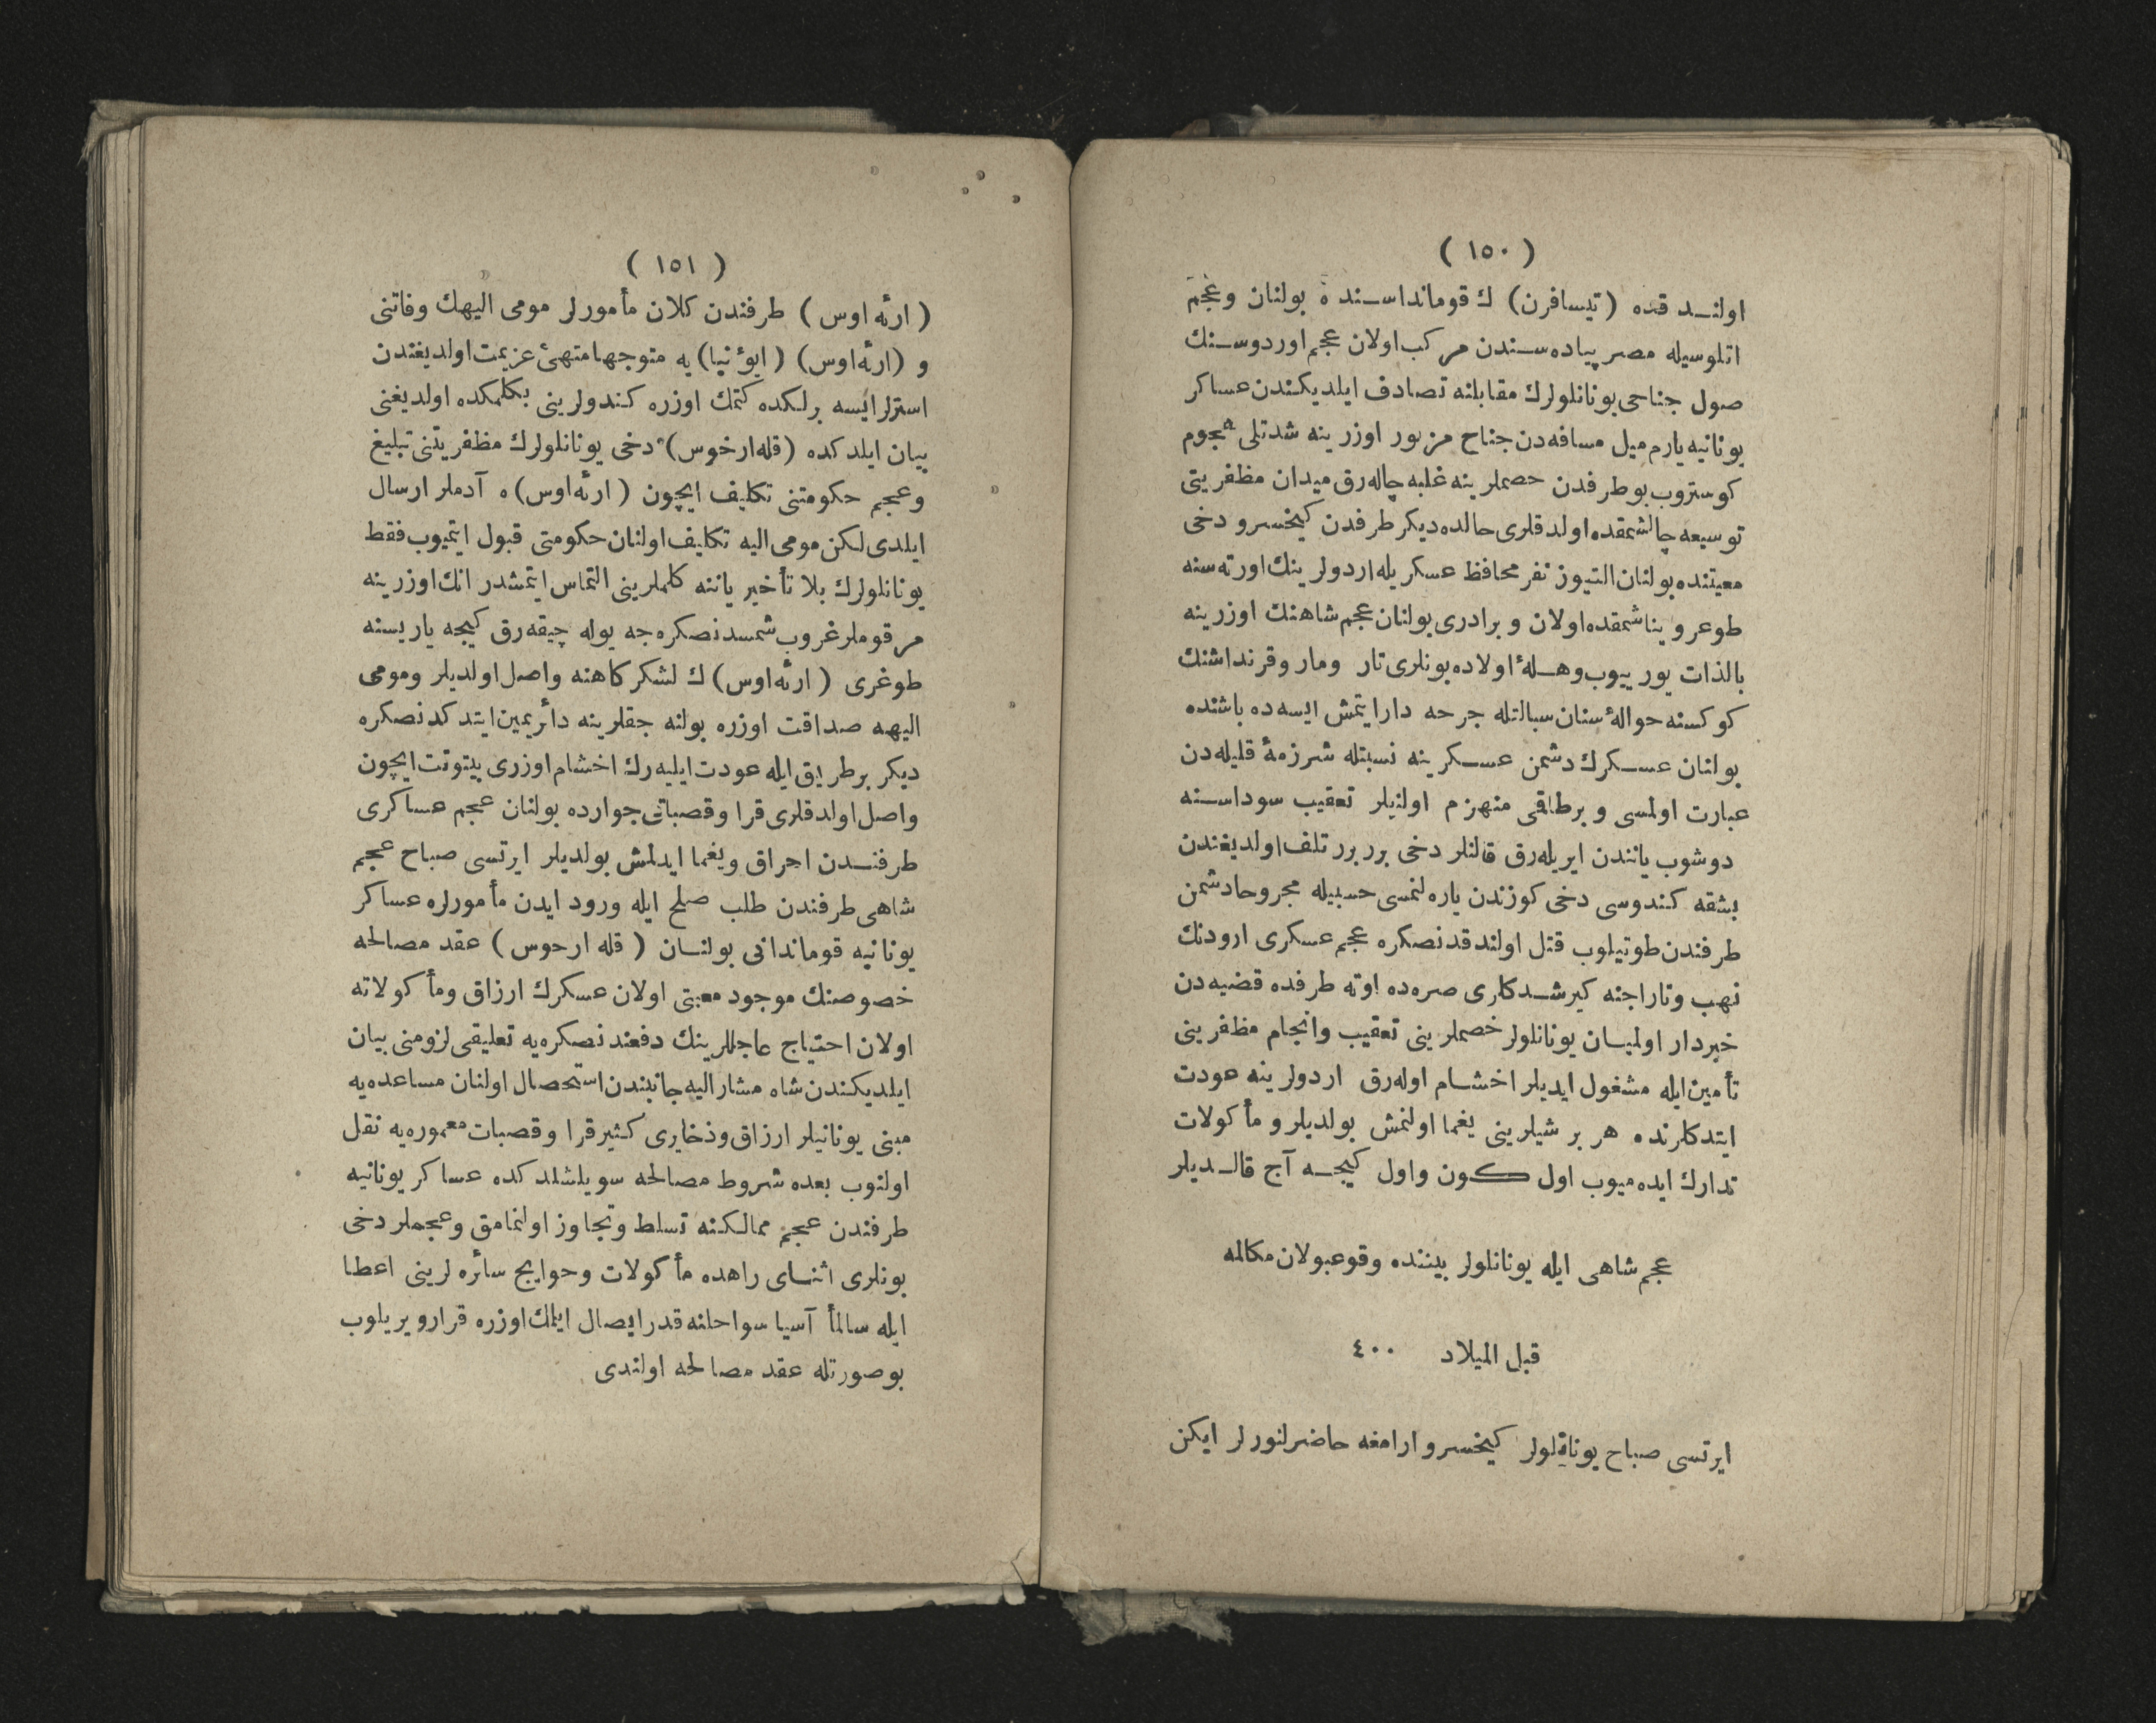 ( ١٥٠ )
اولنـد قده (تيسافرن) ك قوماندا سـنده بولنان وعجم
اتلوسيله مصر پياده سـندن مركب اولان عجم اوردوسـنك
صول جناحى يونانلولرك مقابلنه تصادف ايلديكندن عساكر
يونانيه يارم ميل مسافه دن جناح مزبور اوزرينه شدتلى هجوم
كوستروب بو طرفدن حصملرينه غلبه چاله رق ميدان مظفريتى
توسيعه چالشمقده اولدقلرى حالده ديكر طرفدن كيخسرو دخى
معيتنده بولنان التيوز نفر محافظ عسكريله اردولرينك اورته سنه
طوعرو يناشمقده اولان و برادرى بولنان عجم شاهنك اوزرينه
بالذات يورييوب وهـلۀ اولاده بونلرى تار ومار وقرنداشنك
كوكسنه حوالۀ سنان سبالتله جرحه دار ايتمش ايسه ده باشنده
بولنان عسـكرك دشمن عسـكرينه نسبتله شرزمۀ قليله دن
عبارت اولمسى و برطاقى منهزم اولنيلر تعقيب سوداسـنه
دوشوب يانندن ايريله رق قالنلر دخى برر برر تلف اولديغندن
بشقه كندوسى دخى كوزندن ياره لنمسى حسبيله مجروحا دشمن
طرفندن طوتيلوب قتل اولندقدنصكره عجم عسكرى ارودنك
نهب وتاراجنه كيرشـدكلرى صره ده اوته طرفده قضيه دن
خبردار اولميـان يونانلولر خصملرينى تعقيب وانجام مظفرينى
تأمين ايله مشغول ايديلر اخشـام اوله رق اردولرينه عودت
ايتدكلرنده هر بر شيلرينى يغما اولنمش بولديلر و مأكولات
تدارك ايده ميوب اول كون واول كيجـه آج قالـديلر
عجم شاهى ايله يونانلولر بيننده وقوعبولان مكالمه
قبل الميلاد ٤٠٠
ايرتسى صباح يونانلولر كيخسرو ارامغه حاضرلنورلر ايكن
( ١٥١ )
( ارئه اوس ) طرفندن كلان مأمورلر مومى اليهك وفاتنى
و (ارئه اوس) ( ايؤنيا) يه متوجها متهئ عزيمت اولديغندن
استرلر ايسه برلكده كتمك اوزره كندولرينى بكلمكده اولديغنى
بيان ايلدكده (قله ارخوس) دخى يونانلولرك مظفريتنى تبليغ
وعجم حكومتنى تكليف ايچون ( ارئه اوس) ه آدملر ارسال
ايلدى لكن مومى اليه تكليف اولنان حكومتى قبول ايتميوب فقط
يونانلولرك بلا تأخير ياننه كلملرينى التماس ايتمشدر انك اوزرينه
مرقوملر غروب شمسدنصكره جه يوله چيقه رق كيجه ياريسنه
طوغرى ( ارئه اوس) ك لشكركاهنه واصل اولديلر ومومى
اليهه صداقت اوزره بولنه جقلرينه دائر يمين ايتدكدنصكره
ديكر برطريق ايله عودت ايليه رك اخشام اوزرى بيتوتت ايچون
واصل اولدقلرى قرا وقصباتى جوارده بولنان عجم عساكرى
طرفنـدن احراق ويغما ايدلمش بولديلر ايرتسى صباح عجم
شاهى طرفندن طلب صلح ايله ورود ايدن مأمورلره عساكر
يونانيه قوماندانى بولنـان ( قله ارحوس ) عقد مصالحه
خصوصنك موجود معيتى اولان عسكرك ارزاق ومأكولاته
اولان احتياج عاجللرينك دفعندنصكره يه تعليقى لزومنى بيان
ايلديكندن شاه مشار اليه جانبندن استحصال اولنان مساعده يه
مبنى يونانيلر ارزاق وذخايرى كثير قرا وقصبات معموره يه نقل
اولنوب بعده شروط مصالحه سويلشلدكده عساكر يونانيه
طرفندن عجم ممالكنه تسلط وتجاوز اولنمامق وعجملر دخى
بونلرى اثنـاى راهده مأكولات وحوايج سائره لرينى اعطا
ايله سالمأ آسيا سواحلنه قدر ايصال ايلمك اوزره قرار ويريلوب
بو صورتله عقد مصالحه اولندى